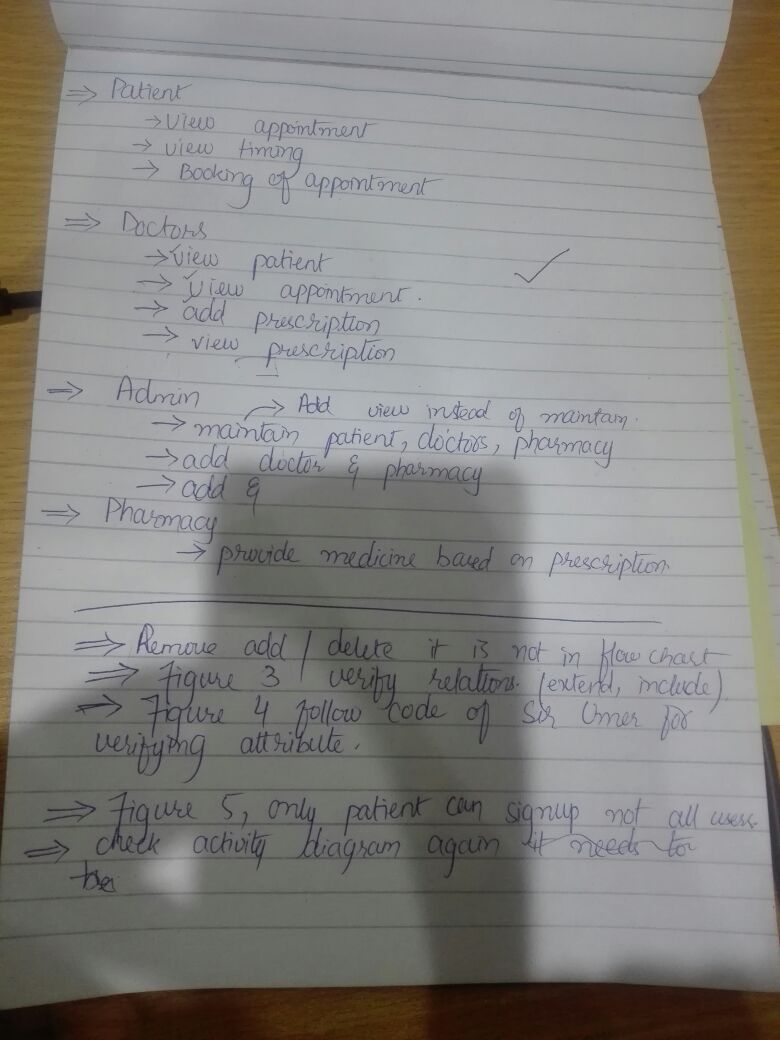 ⇒ Patient
→ View appointment
→ view timing
→ Booking of appointment
⇒ Doctors
→ view patient
→ view appointment.
→ add prescription
→ view prescription
⇒ Admin
→ Add view instead of maintain.
→ maintain patient, doctors, pharmacy
→ add doctor & pharmacy
→ add &
⇒ Pharmacy
→ provide medicine based on prescription
⇒ Remove add / delete it is not in flow chart
⇒ Figure 3 verify relations. (extend, include)
⇒ Figure 4 follow code of Sir Umer for
verifying attribute.
⇒ Figure 5, only patient can signup not all users.
⇒ check activity diagram again it needs to
be